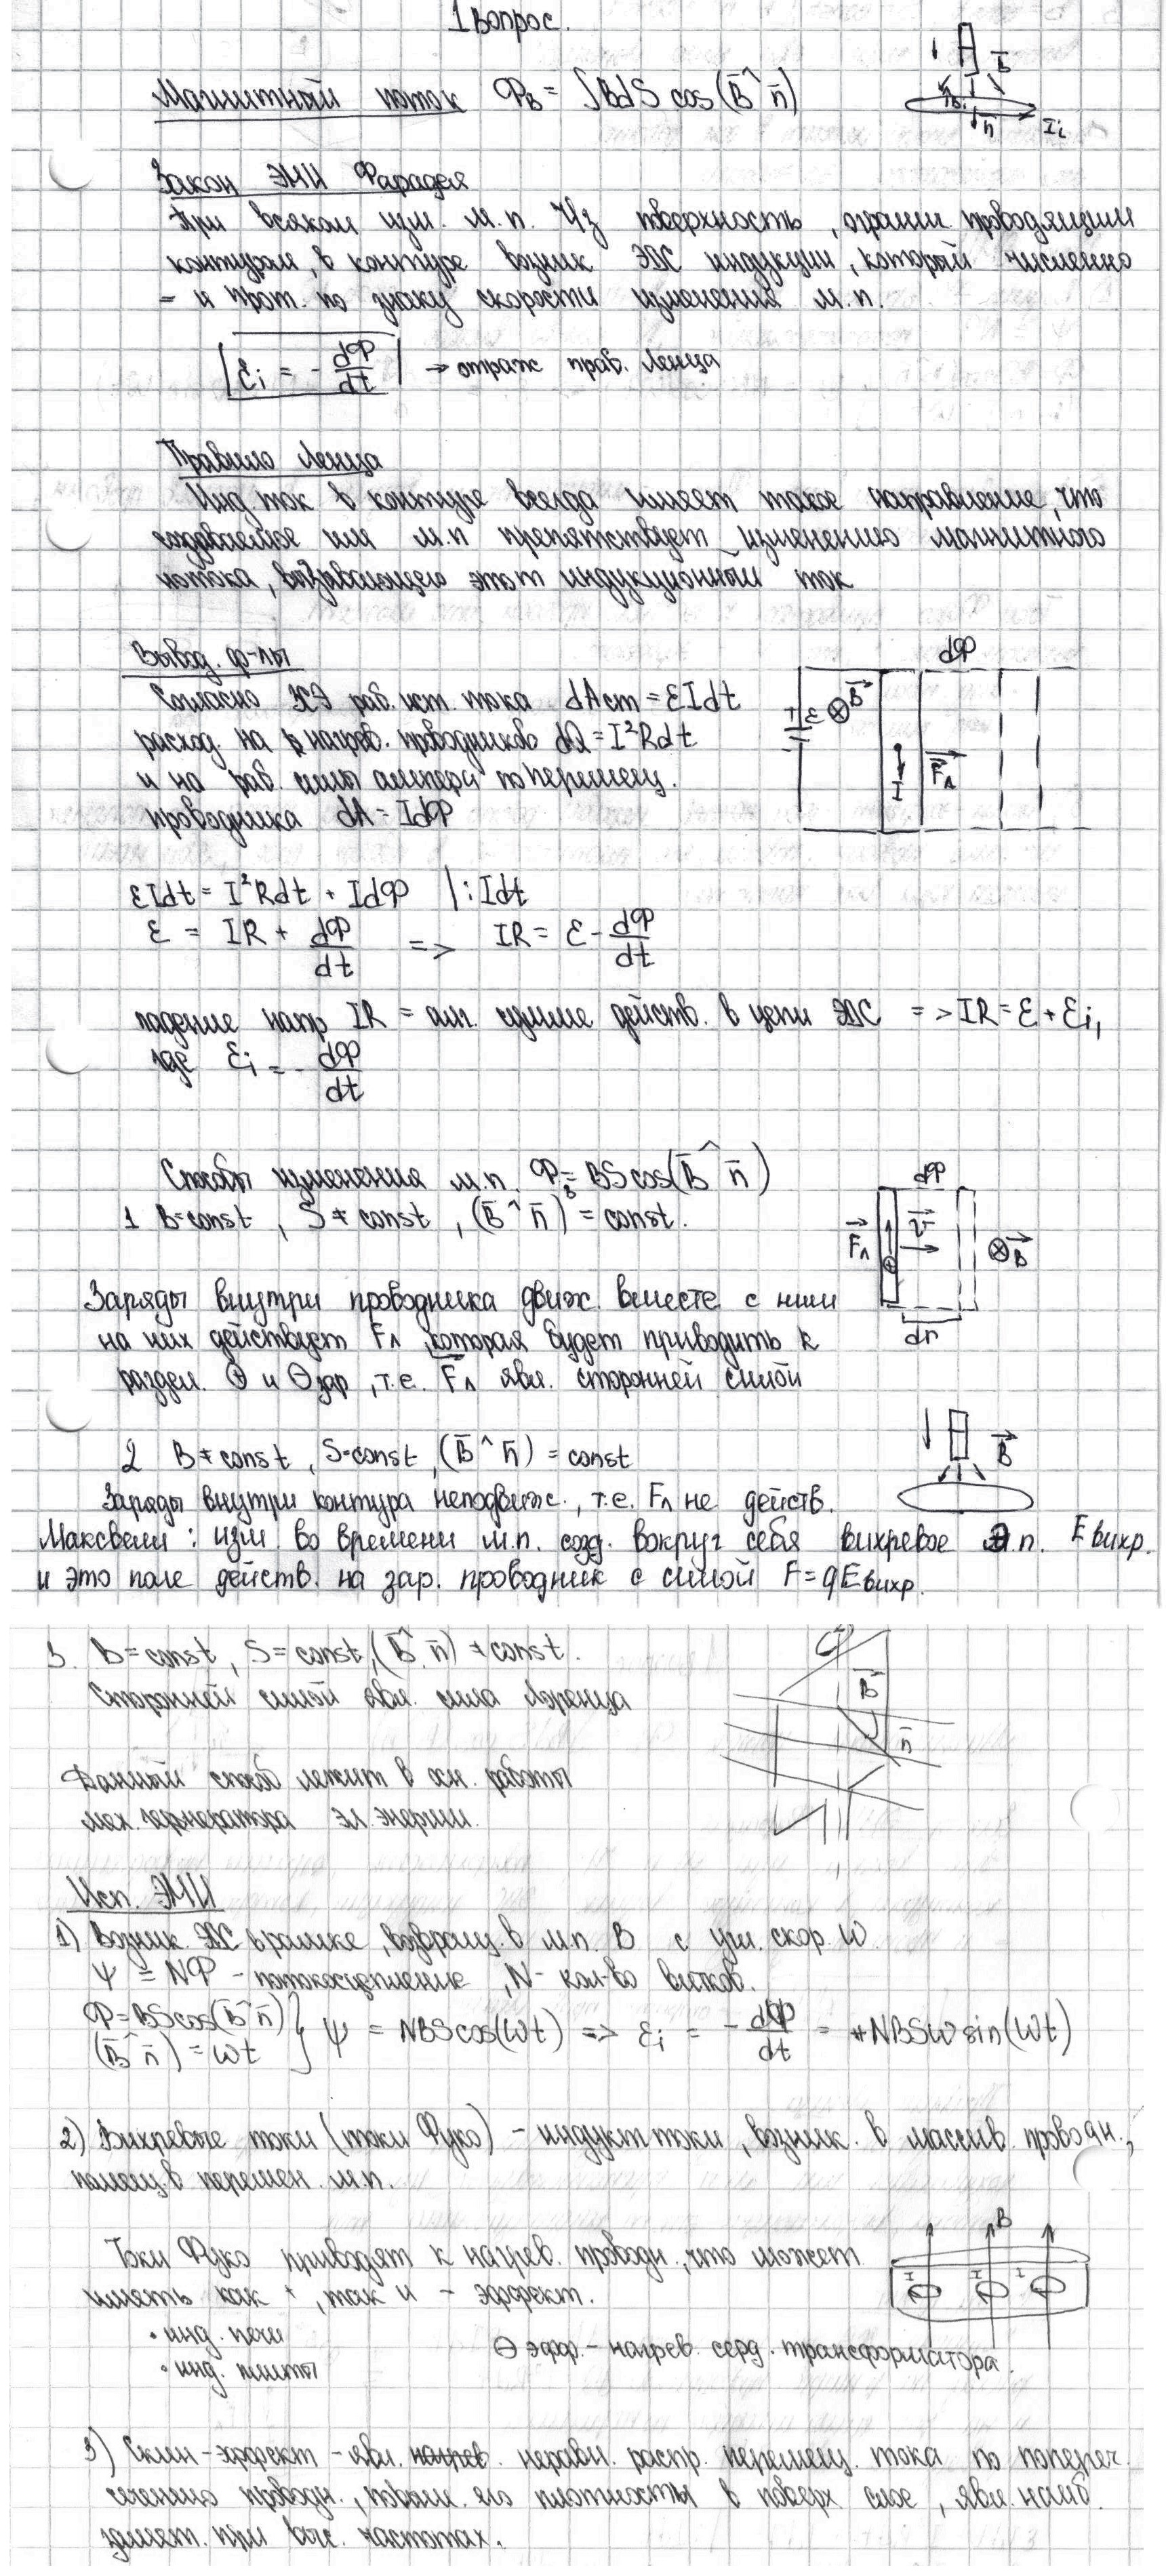 1 Вопрос.
Магнитный поток Φ_B = ∫BdS cos(B̄^n̄)
B̄
B̄i
n̄
Ii
Закон ЭМИ Фарадея
При всяком изм. м.п. ч/з поверхность, огранич. проводящим
контуром, в контуре возник ЭДС индукции, который численно
= и прот. по знаку скорости изменения м.п.
|εi = - dΦ/dt| → отраж прав. Ленца
Правило Ленца
Инд. ток в контуре всегда имеет такое направление, что
создаваемое им м.п препятствует изменению магнитного
потока, вызвавшего этот индукционный ток
Вывод. ф-лы
Согласно ЗСЭ раб. ист. тока dAст = εIdt
расход. на нагрев. проводников dQ = I²Rdt
и на раб. силы ампера по перемещ.
проводника dA = IdΦ
dΦ
+ ε ⊗ B⃗
I F⃗л
εIdt = I²Rdt + IdΦ |:Idt
ε = IR + dΦ/dt => IR = ε - dΦ/dt
падение напр IR = алг. сумме действ. в цепи ЭДС => IR = ε + εi,
где εi = - dΦ/dt
Способы изменения м.п. Φ_B = BS cos(B̄^n̄)
1 B=const, S≠const, (B̄^n̄) = const.
dΦ
F⃗л v⃗ ⊗B⃗
dr
Заряды внутри проводника движ. вместе с ним
на них действует Fл, которая будет приводить к
раздел. ⊕ и ⊖ зар, т.е. F⃗л явл. сторонней силой
2 B≠const, S=const, (B̄^n̄) = const
B⃗
Заряды внутри контура неподвиж., т.е. Fл не действ.
Максвелл: изм во времени м.п. созд. вокруг себя вихревое э.п. Eвихр.
и это поле действ. на зар. проводник с силой F=qEвихр.
3. B=const, S=const, (B̄^n̄) ≠ const.
Сторонней силой явл. сила Лоренца
B⃗
n̄
Данный способ лежит в осн. работы
мех. гернератора эл. энергии.
Исп. ЭМИ
1) Возник. ЭДС в рамке, возвращ. в м.п. B с угл. скор. W.
Ψ = NΦ - потокосцепление, N - кол-во витков.
Φ=BScos(B̄^n̄)
(B̄^n̄) = wt } Ψ = NBScos(wt) => εi = - dΦ/dt = +NBSW sin(wt)
2) Вихревые токи (токи Фуко) - индукт токи, возник. в массив. проводн.,
помещ. в перемен. м.п.
Токи Фуко приводят к нагрев. проводн., что может
иметь как +, так и - эффект.
B
I I I
• инд. печи
• инд. плиты
⊖ эфф. - нагрев. серд. трансформатора.
3) Скин-эффект - явл. неравн. распр. перемещ. тока по попереч.
сечению проводн., его плотность в поверх слое, явл. наиб.
замет. при выс. частотах.